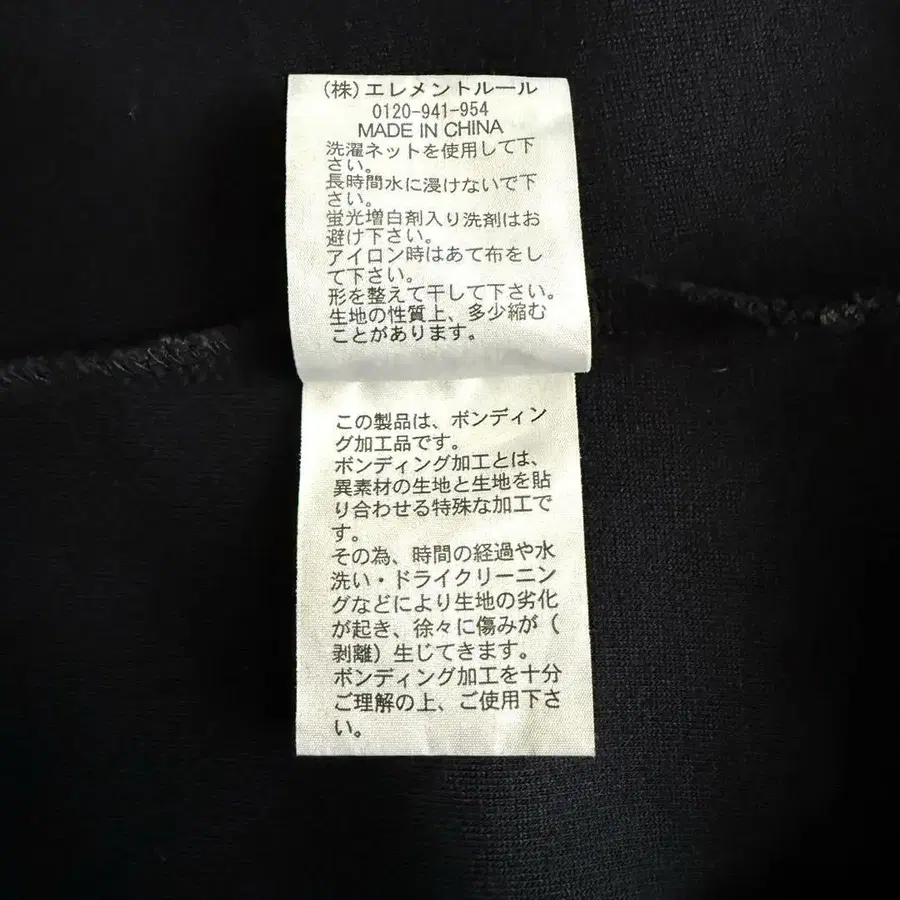 (株)エレメントルール
0120-941-954
MADE IN CHINA
洗濯ネットを使用して下
さい。
長時間水に浸けないで下
さい。
蛍光増白剤入り洗剤はお
避け下さい。
アイロン時はあて布をし
て下さい。
形を整えて干して下さい。
生地の性質上、多少縮む
ことがあります。
この製品は、ボンディン
グ加工品です。
ボンディング加工とは、
異素材の生地と生地を貼
り合わせる特殊な加工で
す。
その為、時間の経過や水
洗い・ドライクリーニン
グなどにより生地の劣化
が起き、徐々に傷みが(
剥離)生じてきます。
ボンディング加工を十分
ご理解の上、ご使用下さ
い。